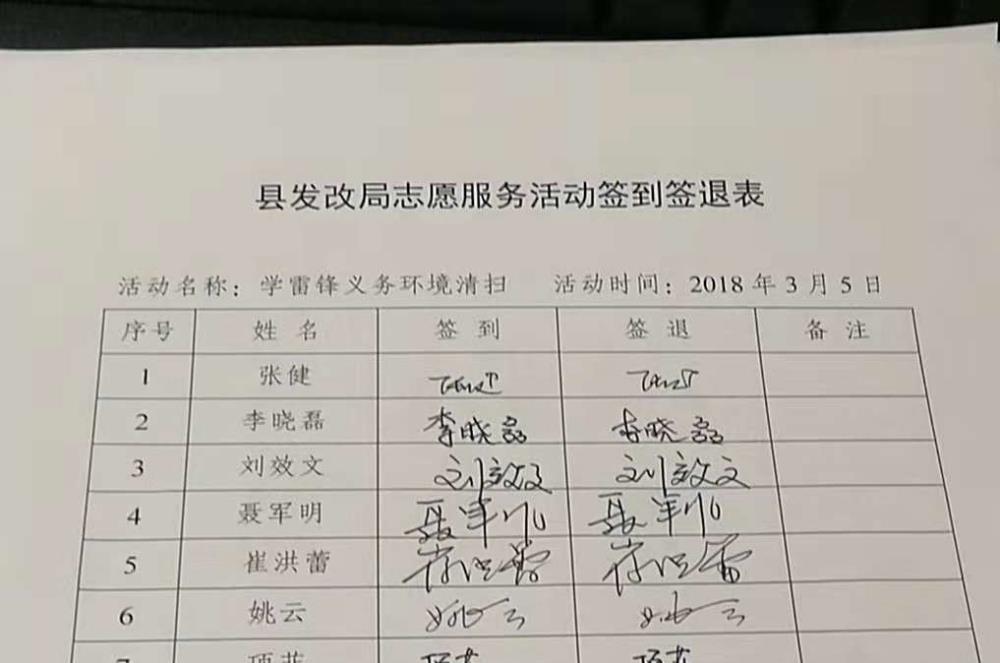 县发改局志愿服务活动签到签退表
活动名称：学雷锋义务环境清扫 活动时间：2018年3月5日
序号 姓名 签到 签退 备注
1 张健
2 李晓磊 李晓磊 李晓磊
3 刘效文 刘效文 刘效文
4 聂军明 聂军明 聂军明
5 崔洪蕾 崔洪蕾 崔洪蕾
6 姚云 姚云 姚云